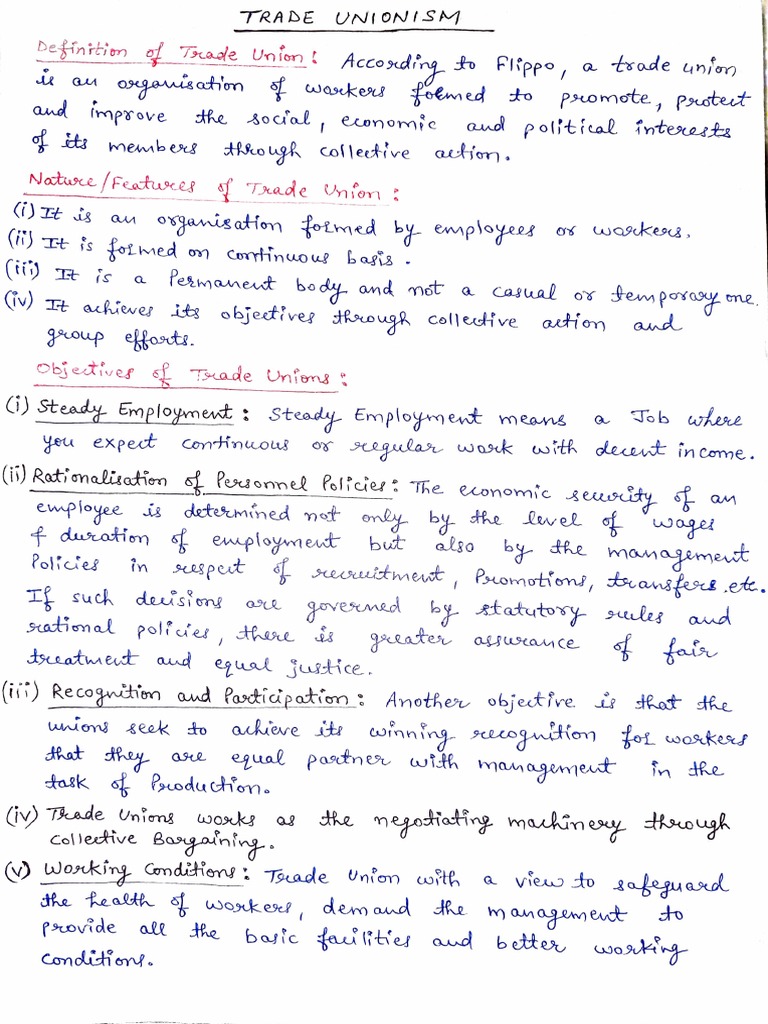 TRADE UNIONISM
Definition of Trade Union: According to Flippo, a trade union
is an organisation of workers formed to promote, protect
and improve the social, economic and political interests
of its members through collective action.
Nature/Features of Trade Union:
(i) It is an organisation formed by employees or workers.
(ii) It is formed on continuous basis.
(iii) It is a Permanent body and not a casual or temporary one.
(iv) It achieves its objectives through collective action and
group efforts.
Objectives of Trade Unions:
(i) Steady Employment: Steady Employment means a Job where
you expect continuous or regular work with decent income.
(ii) Rationalisation of Personnel Policies: The economic security of an
employee is determined not only by the level of wages
& duration of employment but also by the management
Policies in respect of recruitment, Promotions, transfers etc.
If such decisions are governed by statutory rules and
rational policies, there is greater assurance of fair
treatment and equal justice.
(iii) Recognition and Participation: Another objective is that the
unions seek to achieve its winning recognition for workers
that they are equal partner with management in the
task of Production.
(iv) Trade Unions works as the negotiating machinery through
Collective Bargaining.
(v) Working Conditions: Trade Union with a view to safeguard
the health of workers, demand the management to
provide all the basic facilities and better working
conditions.